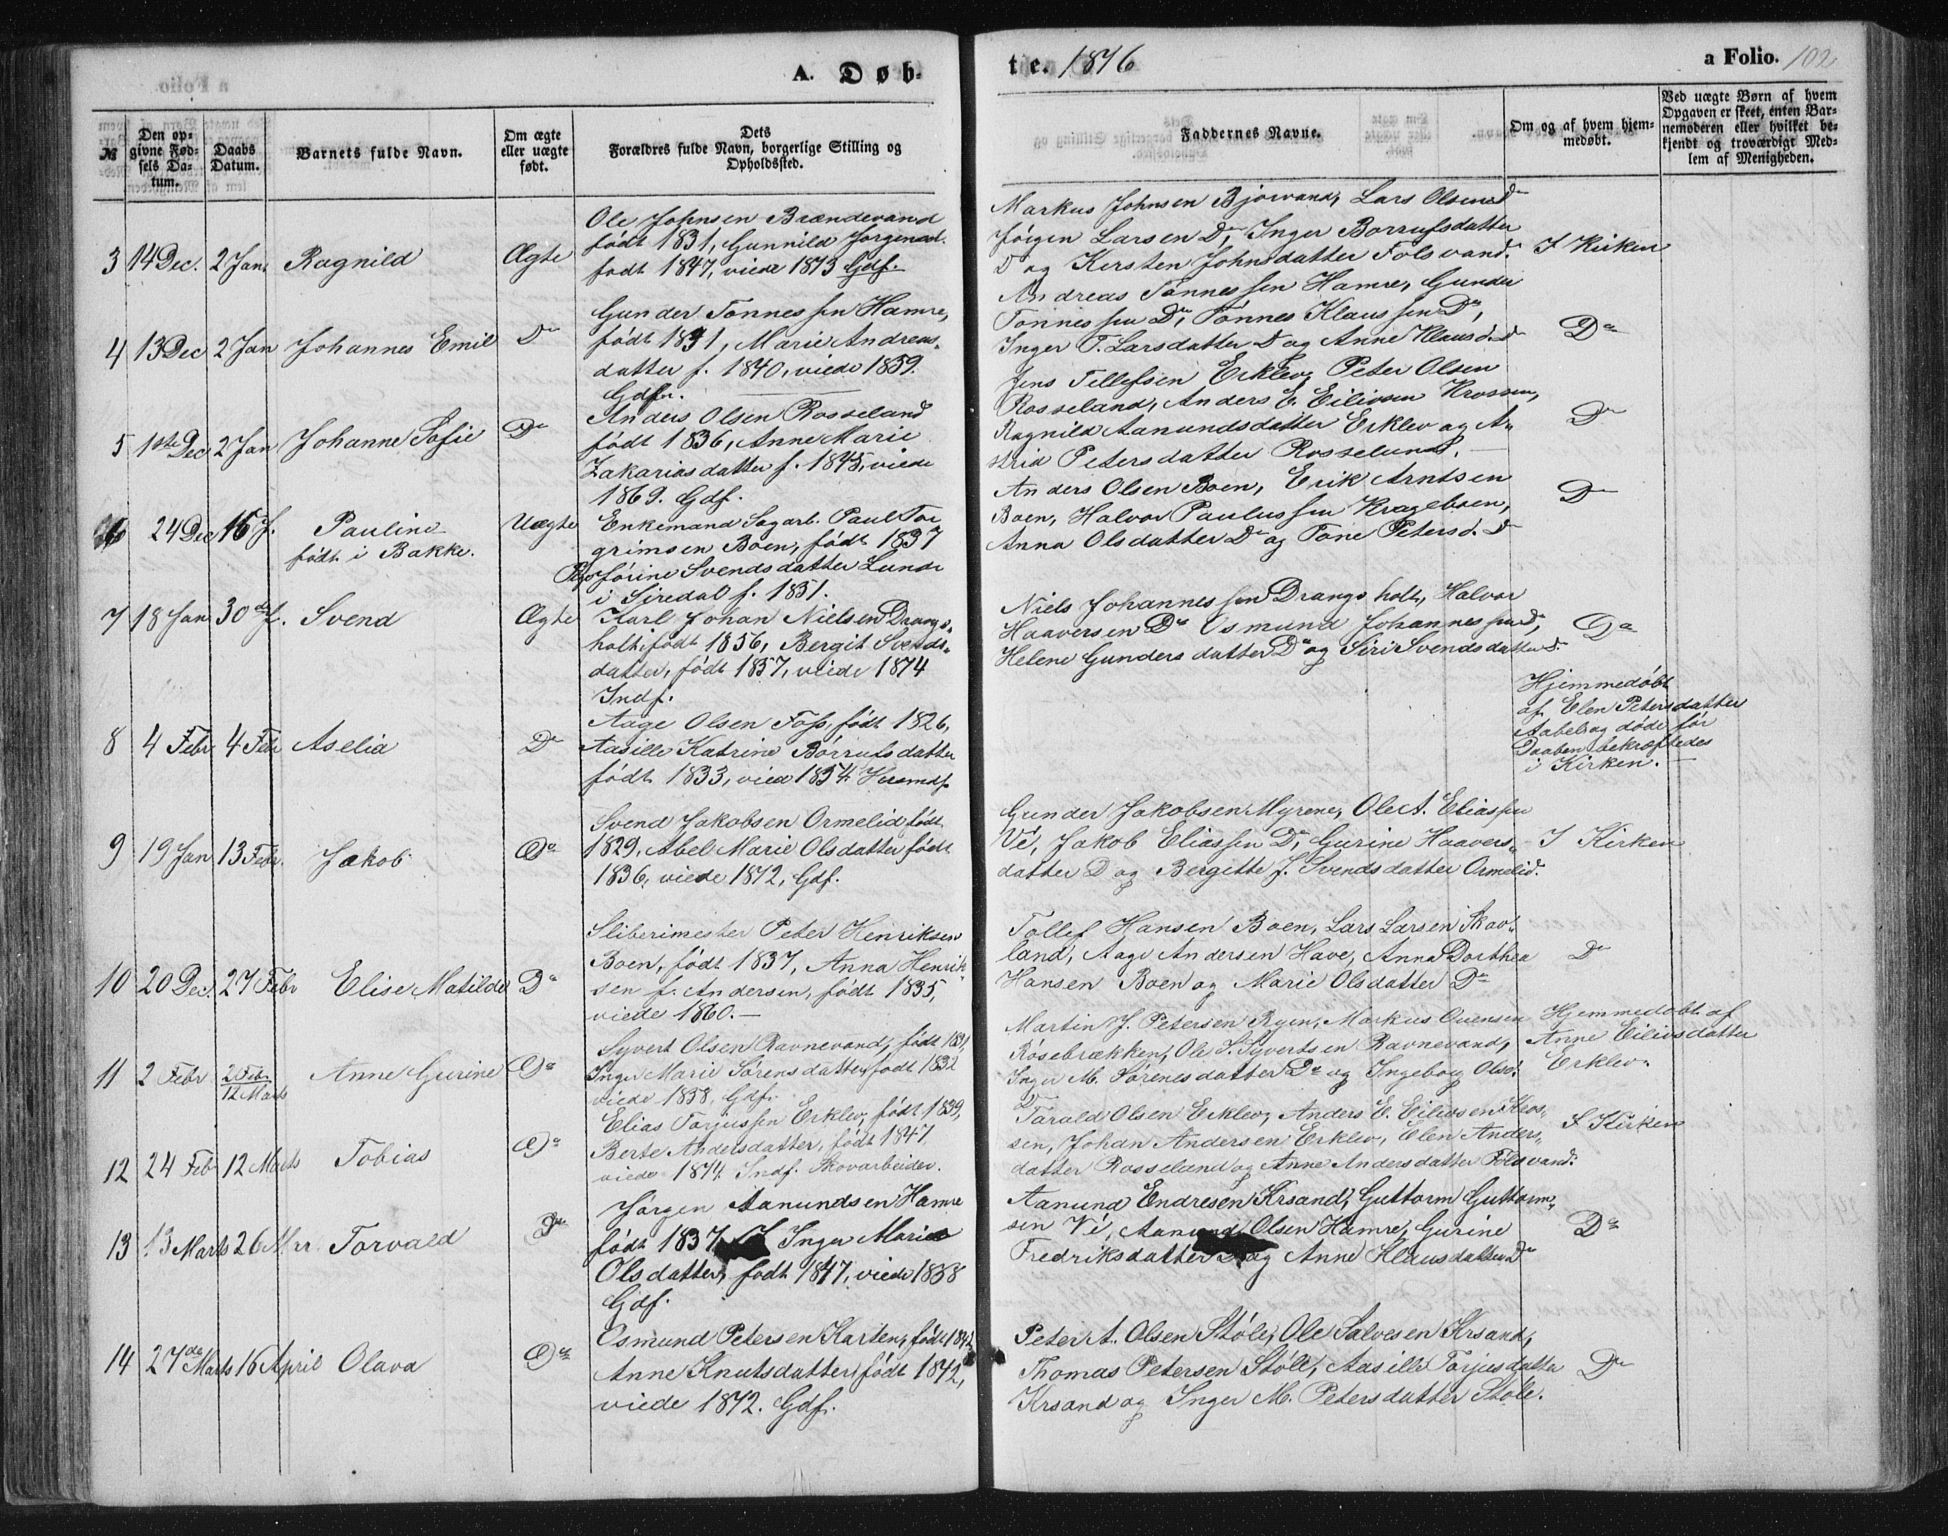 A. Døb-
te. 1876
a Folio. 102
№
Den op-
givne Fød-
sels Da-
tum.
Daabs
Datum.
Barnets fulde Navn.
Om ægte
eller uægte
født.
Dets
Forældres fulde Navn, borgerlige Stilling og
Opholdssted.
Faddernes Navne.
Om og af hvem hjem-
medøbt.
Ved uægte Børn af hvem
Opgaven er skeet, enten Bar-
nemoderen eller hvilket be-
kjendt og troværdigt Med-
lem af Menigheden.
3 14 Dec. 2 Jan. Ragnild Ægte
Ole Johnsen Brændevand
født 1831, Gunnild Jørgensd.
født 1847, viede 1873 Gdf.
Markus Johnsen Bjorvand, Lars Olsen Do
Jørgen Larsen Do, Inger Borrufsdatter
D og Kirsten Johnsdatter Følsvand.
I Kirken
4 13 Dec 2 Jan Johannes Emil Do
Gunder Tønnessen Hamre,
født 1831, Marie Andreas-
datter f. 1840, viede 1859.
Gdfr.
Andreas Tønnessen Hamre, Gunder
Tønnessen Do, Tønnes Klaussen Do,
Inger T. Larsdatter D og Anne Klausd. D
Do
5 1ste Dec 2 Jan Johanne Sofie Do
Anders Olsen Rosseland
født 1836, Anne Marie
Zakariasdatter f. 1845, viede
1869. Gdf.
Jens Tellefsen Erklev, Peter Olsen
Rosseland, Anders E. Eilivsen Krossen,
Ragnild Aanundsdatter Erklev og A-
strid Petersdatter Rosseland.
Do
6 24 Dec 16 J. Pauline
født i Bakke.
Uægte
Enkemand Sagarb. Paul Tor
grimsen Boen, født 1837
Pige Jørine Svendsdatter Lunde
i Siredal f. 1851.
Anders Olsen Boen, Erik Arntsen
Boen, Halvor Paulussen Krageboen,
Anna Olsdatter Do og Tone Petersd. D
Do
7 18 Jan 30de J. Svend Ægte
Karl Johan Nielsen Drangs-
holt, født 1856, Bergit Svends-
datter, født 1857, viede 1874
Indf.
Niels Johannessen Drangsholt, Halvor
Haaversen Do Osmund Johannessen D,
Helene Gundersdatter Do og Siri Svendsdatter D.
Do
8 4 Febr 4 Febr Aselia Do
Aage Olsen Foss, født 1826,
Aasille Katrine Børrufsdatter
født 1833, viede 1854 Husmd.
Hjemmedøbt
af Elen Petersdatter
Aabel og døde før
Daaben bekræftedes
i Kirken.
9 19 Jan 13 Febr. Jakob Do
Svend Jakobsen Ormelid født
1829, Abel Marie Olsdatter født
1836, viede 1872, Gdf.
Gunder Jakobsen Myrene, Ole A. Eliassen
Vé, Jakob Eliassen D, Gurine Haavers-
datter D og Bergitte J. Svendsdatter Ormelid.
I Kirken
10 20 Dec. 27 Febr Elise Matilde Do
Sliberimester Peter Henriksen
Boen, født 1837, Anna Henrik-
sen f. Andersen, født 1835,
viede 1860.
Tollef Hansen Boen, Lars Larsen Skov-
land, Aage Andersen Have, Anna Dorthea
Hansen Boen og Marie Olsdatter Do
Do
11 2 Febr 2 Febr
12 Marts
Anne Gurine Do
Syvert Olsen Ravnevand, født 1831,
Inger Marie Sørensdatter, født 1832
viede 1858, Gdf.
Martin J. Petersen Ryen, Markus Ouensen
Røsebrækken, Ole S. Syvertsen Ravnevand,
Inger M. Sørensdatter Do og Ingeborg Olsd.
D
Hjemmedøbt af
Anne Eilivsdatter
Erklev.
12 24 Feb 12 Marts Tobias Do
Elias Torjussen Erklev, født 1839,
Berte Andersdatter, født 1847
viede 1874 Indf. Skovarbeider.
Tarald Olsen Erklev, Anders E. Eilivsen Kros-
sen, Johan Andersen Erklev, Elen Anders-
datter Rosseland og Anne Andersdatter Følsvand.
I Kirken
13 13 Marts 26 Mar Torvald Do
Jørgen Aanundsen Hamre
født 1837 Inger Marie
Olsdatter, født 1847, viede 1858
Gdf.
Aanund Endresen Krsand, Guttorm Guttorm-
sen Vé, Aanund Olsen Hamre, Gurine
Fredriksdatter D og Anne Klausdatter Do
Do
14 27de Marts 16 April Olava Do
Osmund Petersen Karten, født 1842
Anne Knutsdatter, født 1842,
viede 1872. Gdf.
Peter A. Olsen Støle, Ole Salvesen Krsand,
Thomas Petersen Støle, Aasille Torjusdatter
Krsand og Inger M. Petersdatter Støle.
Do